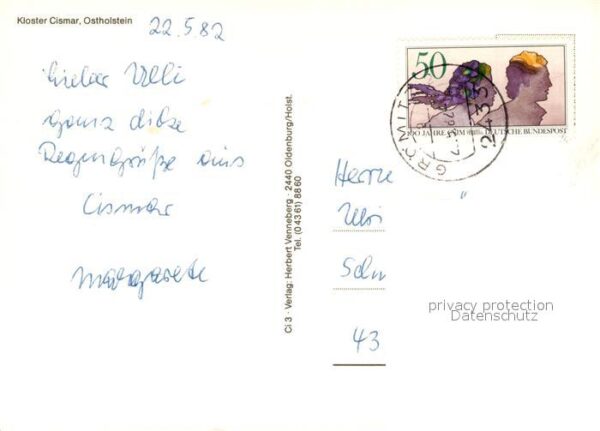 Kloster Cismar, Ostholstein
22.5.82
Lieber Ulli
ganz dicke
Regengrüße aus
Cismar
Margarete
Ci 3 · Verlag: Herbert Venneberg · 2440 Oldenburg/Holst.
Tel. (0 43 61) 8860
50
100 JAHRE CVJM
DEUTSCHE BUNDESPOST
GRÖMITZ
2433
Herrn
43
privacy protection
Datenschutz